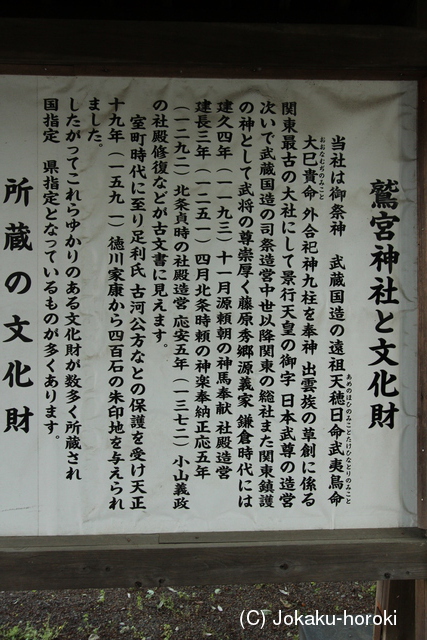 鷲宮神社と文化財
当社は御祭神　武蔵国造の遠祖天穂日命武夷鳥命
あめのほひのみことたけひなとりのみこと
大巳貴命 外合祀神九柱を奉神 出雲族の草創に係る
おおなむちのみこと
関東最古の大社にして景行天皇の御字 日本武尊の造営
次いで武蔵国造の司祭造営中世以降関東の総社また関東鎮護
の神として武将の尊崇厚く藤原秀郷源義家 鎌倉時代には
建久四年（一一九三）十一月源頼朝の神馬奉献 社殿造営
建長三年（一二五一）四月北条時頼の神楽奉納正応五年
（一二九二）北条貞時の社殿造営 応安五年（一三七二）小山義政
の社殿修復などが古文書に見えます。
室町時代に至り足利氏 古河公方などの保護を受け天正
十九年（一五九一）徳川家康から四百石の朱印地を与えられ
ました。
したがってこれらゆかりのある文化財が数多く所蔵され
国指定　県指定となっているものが多くあります。
所蔵の文化財
(C) Jokaku-horoki